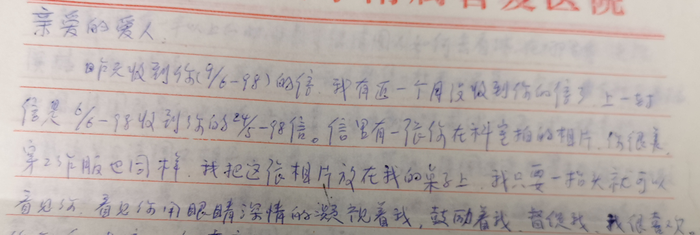 附属省爱医院
亲爱的爱人.
昨天收到你(9/6-98)的信, 我有近一个月没收到你的信了 上一封
信是 6/6-98收到你的24/5-98信。信里有一张你在科室拍的相片. 你很美.
穿工作服也同样. 我把这张相片放在我的桌子上. 我只要一抬头就可以
看见你. 看见你用眼睛深情的凝视着我, 鼓励着我, 督促我.